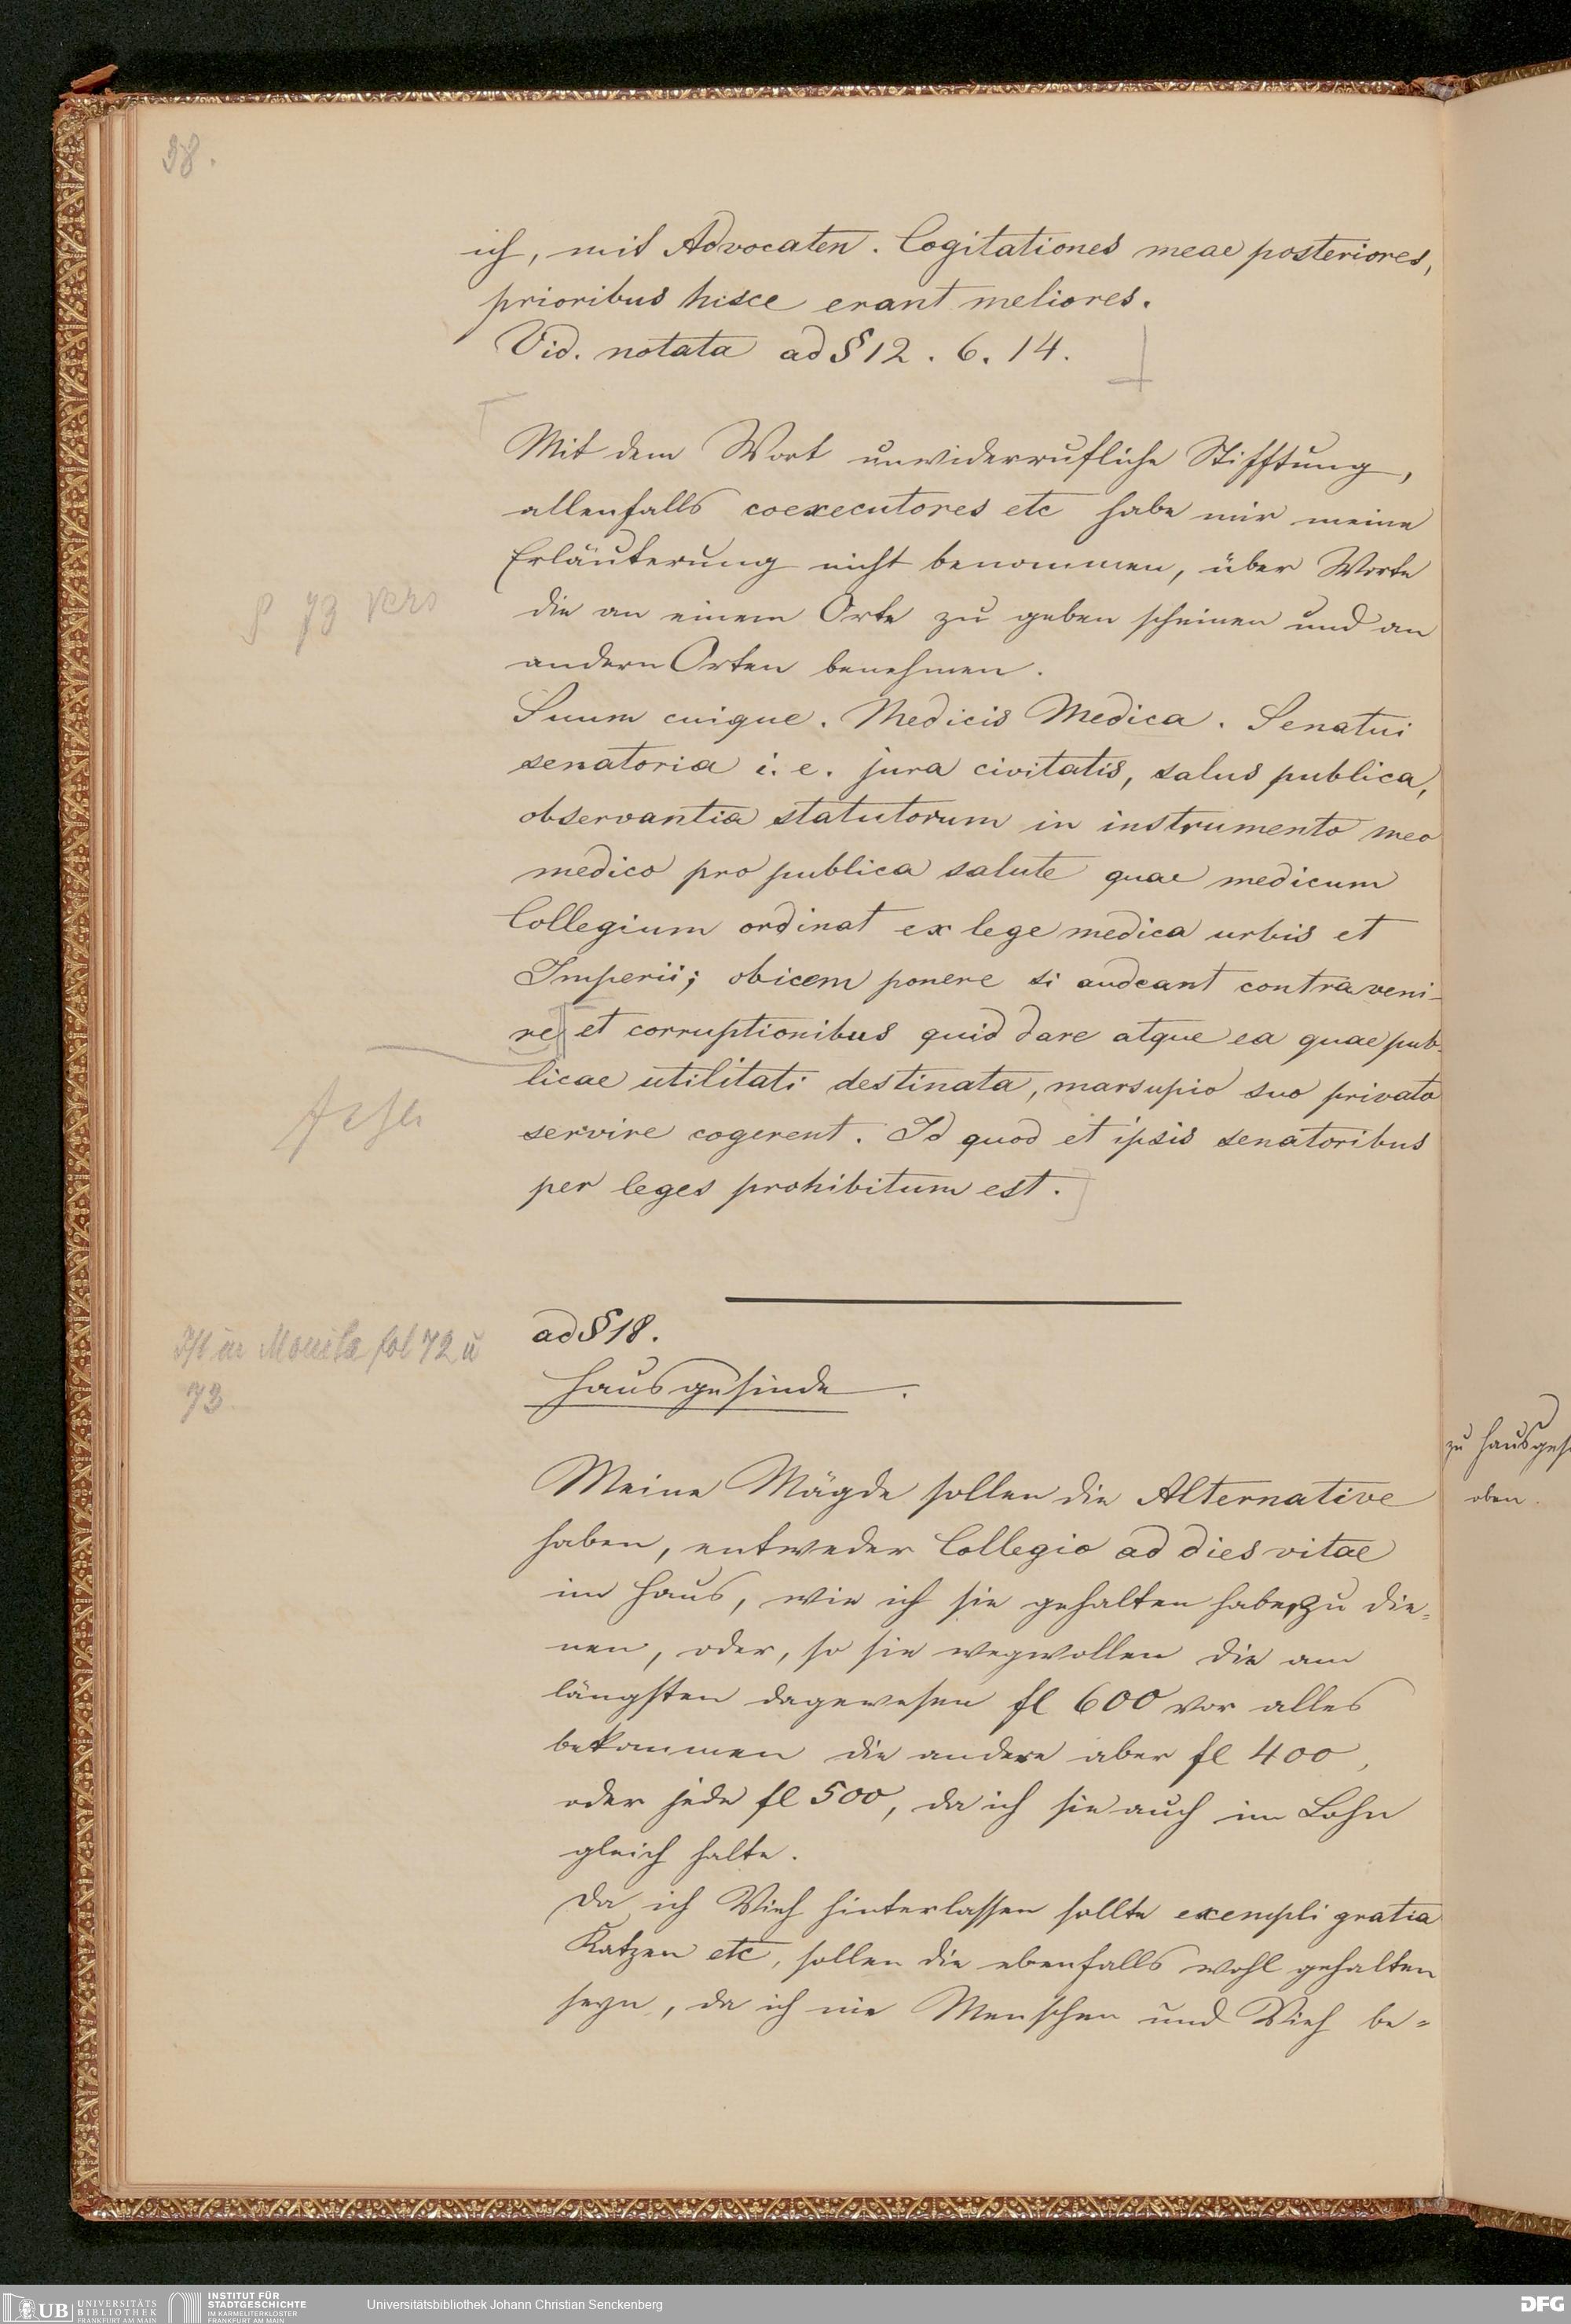 38.
ich, mit Advocaten. Cogitationes meae posteriores,
prioribus hisce erant meliores.
Vid. notata ad § 12. 6. 14.
Mit dem Wort unwiderrufliche Stifftung,
allenfalls coexecutores etc habe mir meine
Erläuterung nicht benommen, über Worte
die an einem Orte zu geben scheinen und an
andern Orten benehmen.
Suum cuique. Medicis Medica. Senatui
senatoria i. e. jura civitatis, salus publica,
observantia statutorum in instrumento meo
medico pro publica salute quae medicum
Collegium ordinat ex lege medica urbis et
Imperii; obicem ponere si audeant contraveni-
re et corruptionibus quid dare atque ea quae pub-
licae utilitati destinata, marsupio suo privato
servire cogerent. Id quod et ipsis senatoribus
per leges prohibitum est.
73 vers
fol 72 u
73
ad § 18.
Hausgesinde.
Meine Mägde sollen die Alternative
haben, entweder Collegio ad dies vitae
im Haus, wie ich sie gehalten habe, zu die-
nen, oder, so sie wegwollen die am
längsten dagewesen fl 600 vor alles
bekommen die andere aber fl 400,
oder jede fl 500, da ich sie auch im Lohn
gleich halte.
Da ich Vieh hinterlassen sollte exempli gratia
Katzen etc, sollen die ebenfalls wohl gehalten
seyn, da ich nie Menschen und Vieh be-
zu Hausges
oben.
UB UNIVERSITÄTS
BIBLIOTHEK
FRANKFURT AM MAIN
INSTITUT FÜR
STADTGESCHICHTE
IM KARMELITERKLOSTER
FRANKFURT AM MAIN
Universitätsbibliothek Johann Christian Senckenberg
DFG